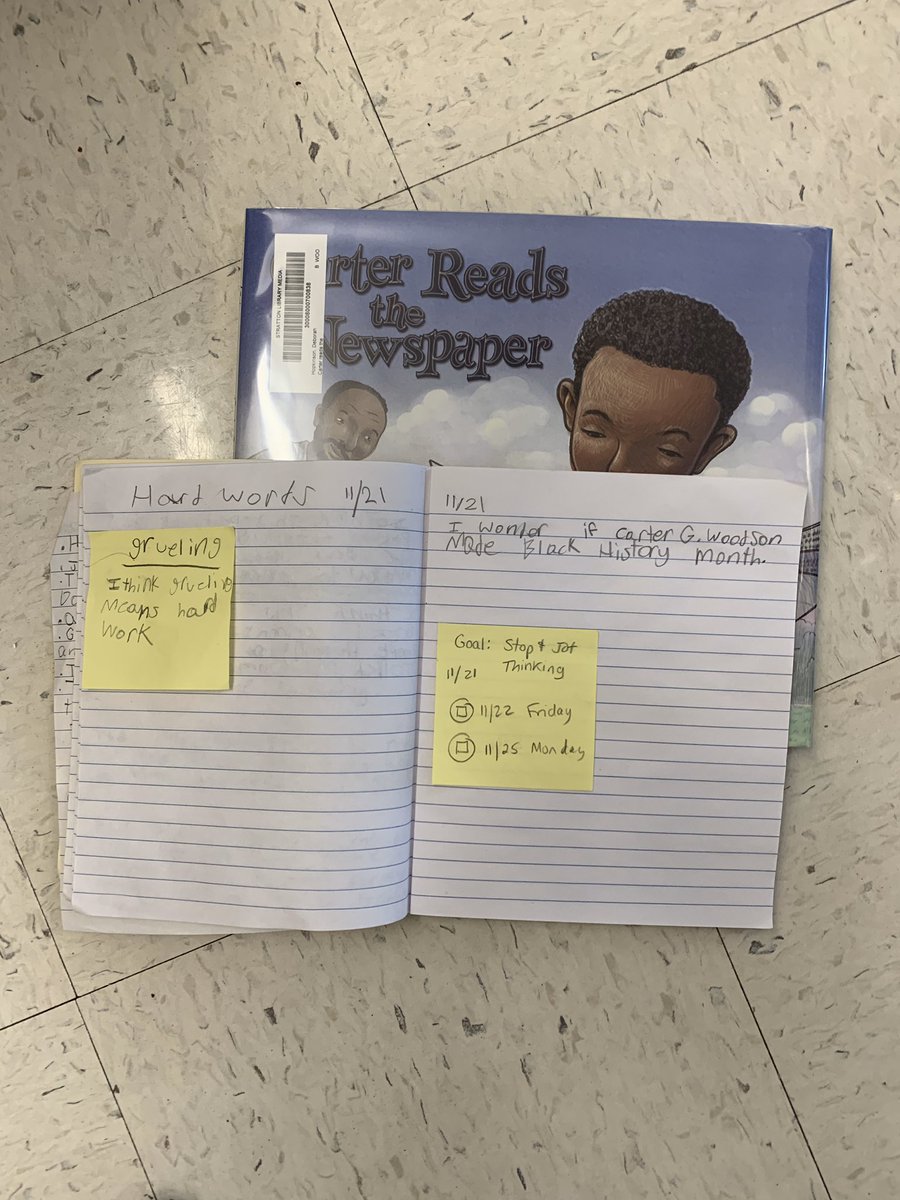 arter Reads
the
Newspaper
STRATTON LIBRARY MEDIA
30008000700838
B WOO
Hopkinson, Deborah
Carter reads the
Hard Words 11/21
grueling
I think grueling
Means hard
Work
11/21
I wonder if Carter G. Woodson
Made Black History Month.
Goal: Stop & Jot
11/21 Thinking
11/22 Friday
11/25 Monday